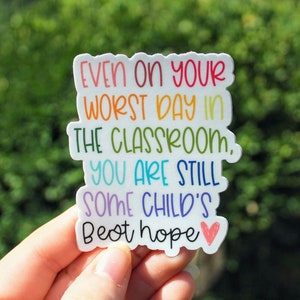 EVEN ON YOUR
WORST DAY IN
THE CLASSROOM,
YOU ARE STILL
SOME CHILD'S
Best hope